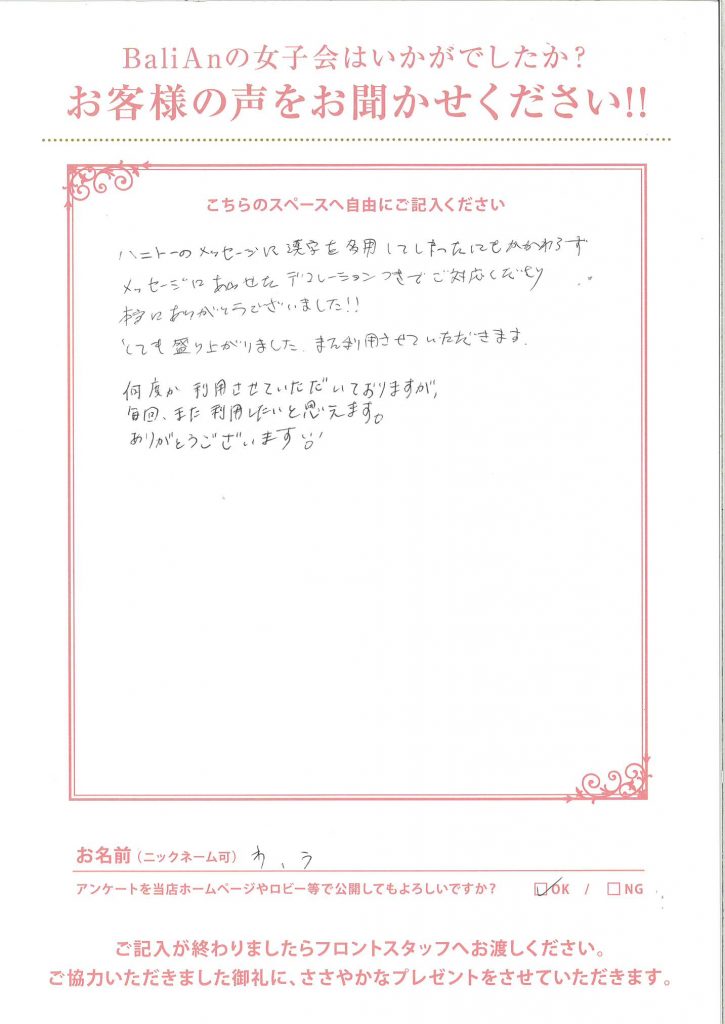 BaliAnの女子会はいかがでしたか？
お客様の声をお聞かせください!!
こちらのスペースへ自由にご記入ください
ハニトーのメッセージに漢字を多用してしまったにもかかわらず
メッセージにあわせたデコレーションつきでご対応くださり
本当にありがとうございました!!
とても盛り上がりました。また利用させていただきます。
何度か利用させていただいておりますが、
毎回、また利用したいと思えます。
ありがとうございます
お名前（ニックネーム可） わ、う
アンケートを当店ホームページやロビー等で公開してもよろしいですか？ OK / NG
ご記入が終わりましたらフロントスタッフへお渡しください。
ご協力いただきました御礼に、ささやかなプレゼントをさせていただきます。